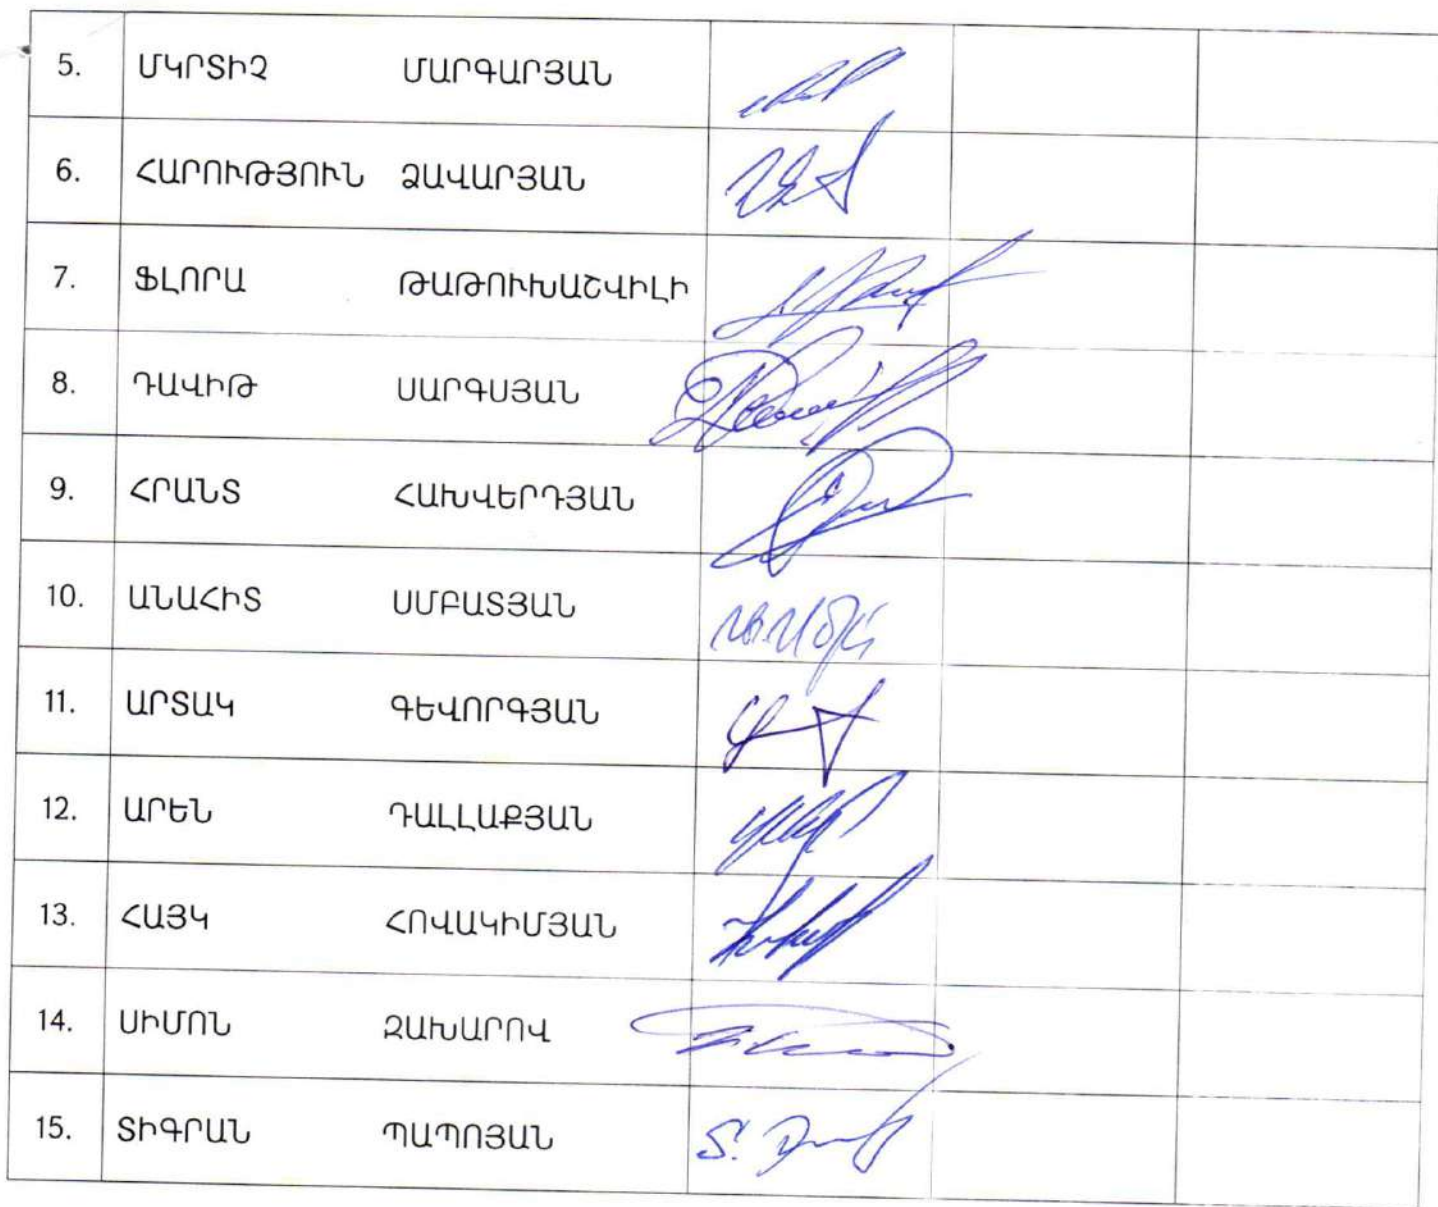 5. ՄԿՐՏԻՉ ՄԱՐԳԱՐՅԱՆ
6. ՀԱՐՈՒԹՅՈՒՆ ՁԱՎԱՐՅԱՆ
7. ՖԼՈՐԱ ԹԱԹՈՒԽԱՇՎԻԼԻ
8. ԴԱՎԻԹ ՍԱՐԳՍՅԱՆ
9. ՀՐԱՆՏ ՀԱԽՎԵՐԴՅԱՆ
10. ԱՆԱՀԻՏ ՍՄԲԱՏՅԱՆ
11. ԱՐՏԱԿ ԳԵՎՈՐԳՅԱՆ
12. ԱՐԵՆ ԴԱԼԼԱՔՅԱՆ
13. ՀԱՅԿ ՀՈՎԱԿԻՄՅԱՆ
14. ՍԻՄՈՆ ԶԱԽԱՐՈՎ
15. ՏԻԳՐԱՆ ՊԱՊՈՅԱՆ